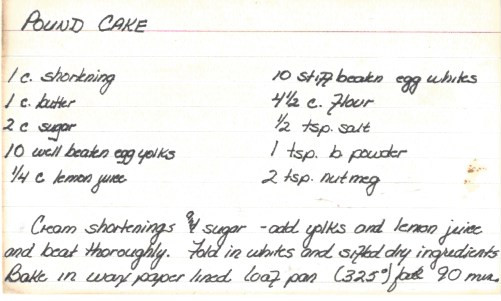 POUND CAKE
1 c. shortening
1 c. butter
2 c sugar
10 well beaten egg yolks
1/4 c lemon juice
10 stiff beaten egg whites
4 1/2 c. flour
1/2 tsp. salt
1 tsp. b powder
2 tsp. nutmeg
Cream shortenings & sugar - add yolks and lemon juice
and beat thoroughly. Fold in whites and sifted dry ingredients
Bake in wax paper lined loaf pan (325°) for 90 min.